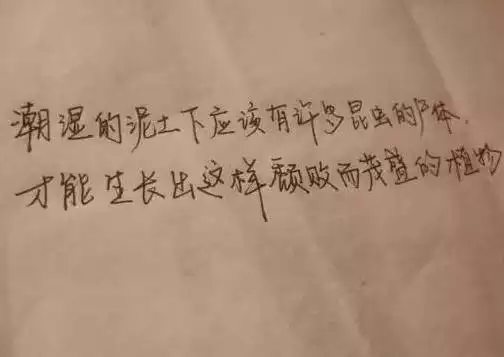 潮湿的泥土下应该有许多昆虫的尸体.
才能生长出这样颓败而茂盛的植物